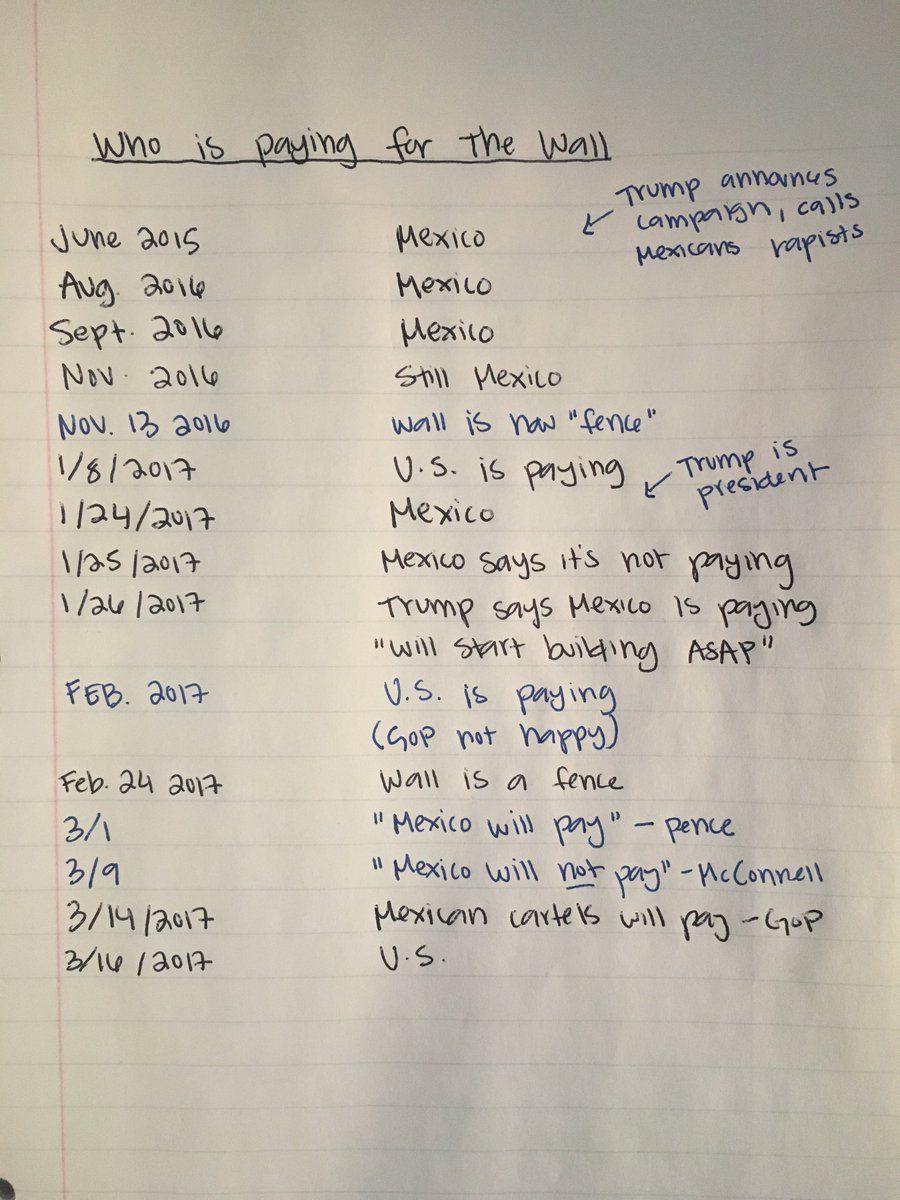 Who is paying for the Wall
Trump announces
campaign, calls
Mexicans rapists
June 2015 Mexico
Aug. 2016 Mexico
Sept. 2016 Mexico
Nov. 2016 Still Mexico
Nov. 13 2016 Wall is now "fence"
1/8/2017 U.S. is paying
Trump is
president
1/24/2017 Mexico
1/25/2017 Mexico says it's not paying
1/26/2017 Trump says Mexico is paying
"will start building ASAP"
FEB. 2017 U.S. is paying
(GOP not happy)
Feb. 24 2017 Wall is a fence
3/1 "Mexico will pay" - pence
3/9 "Mexico will not pay" - McConnell
3/14/2017 Mexican cartels will pay - GOP
3/16/2017 U.S.